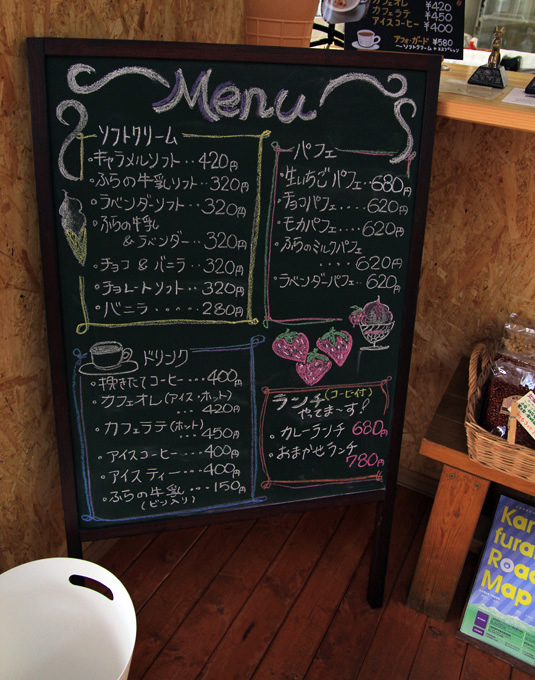 カフェオレ ¥420
カフェラテ ¥450
アイスコーヒー ¥400
アフォガード ¥580
Menu
ソフトクリーム
・キャラメルソフト・・420円
・ふらの牛乳ソフト・・320円
・ラベンダーソフト・・320円
・ふらの牛乳
&ラベンダー・・320円
・チョコ&バニラ・・320円
・チョコレートソフト・・320円
・バニラ・・・・・280円
パフェ
・生いちごパフェ・・680円
・チョコパフェ・・・620円
・モカパフェ・・・620円
・ふらのミルクパフェ
・・・・620円
・ラベンダーパフェ・・620円
ドリンク
・挽きたてコーヒー・・・400円
・カフェオレ(アイス・ホット)
・・・420円
・カフェラテ(ホット)
・・・450円
・アイスコーヒー・・・400円
・アイスティー・・・400円
・ふらの牛乳・・・150円
(ビン入り)
ランチ(コーヒー付)
やってまーす!
・カレーランチ 680円
・おまかせランチ
780円
Kan
furano
Road
Map